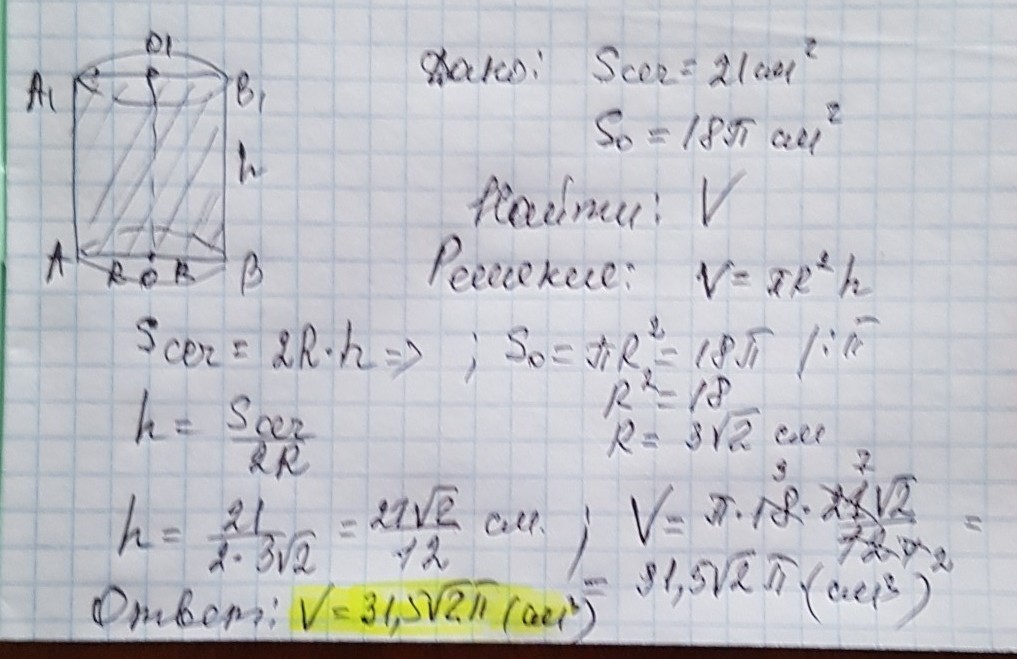 O1
A1 B1
h
A R O R B
Дано: Sсеч = 21 см²
S₀ = 18π см²
Найти: V
Решение: V = πR²h
Sсеч = 2R·h => ; S₀ = πR² = 18π /:π
R² = 18
h = Sсеч/2R
R = 3√2 см
h = 21/2·3√2 = 21√2/12 см. ; V = π·18·21√2/12 =
3 7 2
= 31,5√2π (см³)
Ответ: V = 31,5√2π (см³)